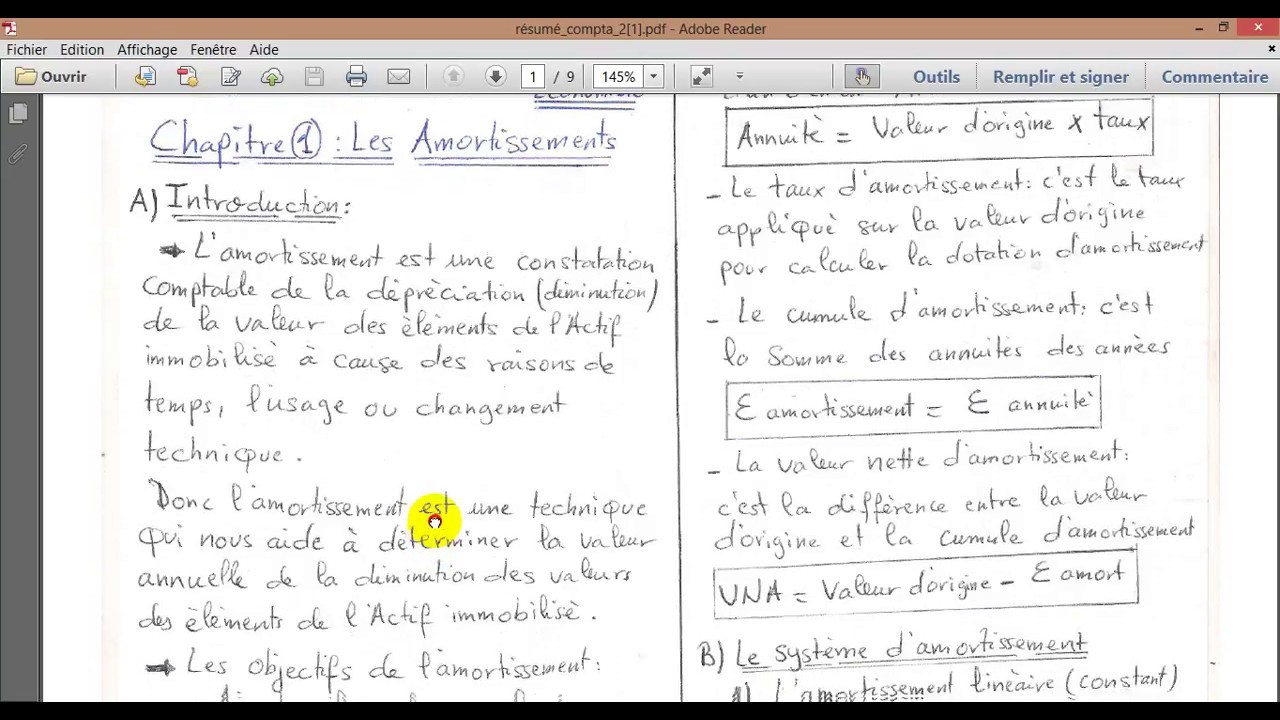 résumé_compta_2[1].pdf - Adobe Reader
Fichier Edition Affichage Fenêtre Aide
Ouvrir 1 / 9 145% Outils Remplir et signer Commentaire
Chapitre ① : Les Amortissements
A) Introduction:
→ L'amortissement est une constatation
comptable de la déprèciation (diminution)
de la valeur des èlèments de l'Actif
immobilisè à cause des raisons de
temps, l'usage ou changement
technique.
Donc l'amortissement est une technique
qui nous aide à dèterminer la valeur
annuelle de la diminution des valeurs
des èlèments de l'Actif immobilisè.
→ Les objectifs de l'amortissement:
Annuitè = Valeur d'origine x taux
- Le taux d'amortissement: c'est le taux
appliquè sur la valeur d'origine
pour calculer la dotation d'amortissement
- Le cumule d'amortissement: c'est
la Somme des annuitès des annèes
Ɛ amortissement = Ɛ annuitè
- La valeur nette d'amortissement:
c'est la diffèrence entre la valeur
d'origine et la cumule d'amortissement
VNA = Valeur d'origine - Ɛ amort
B) Le système d'amortissement
1) l'amortissement linèaire (constant)